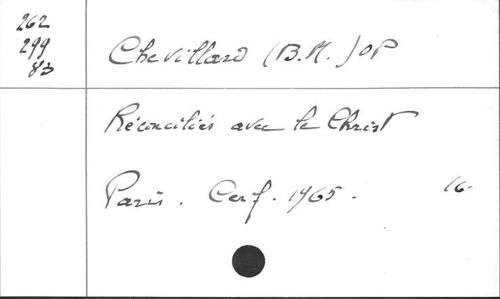 262
299
83
Chevillard (B.M.) OP
Réconciliés avec le Christ
Paris. Cerf. 1965.
16.